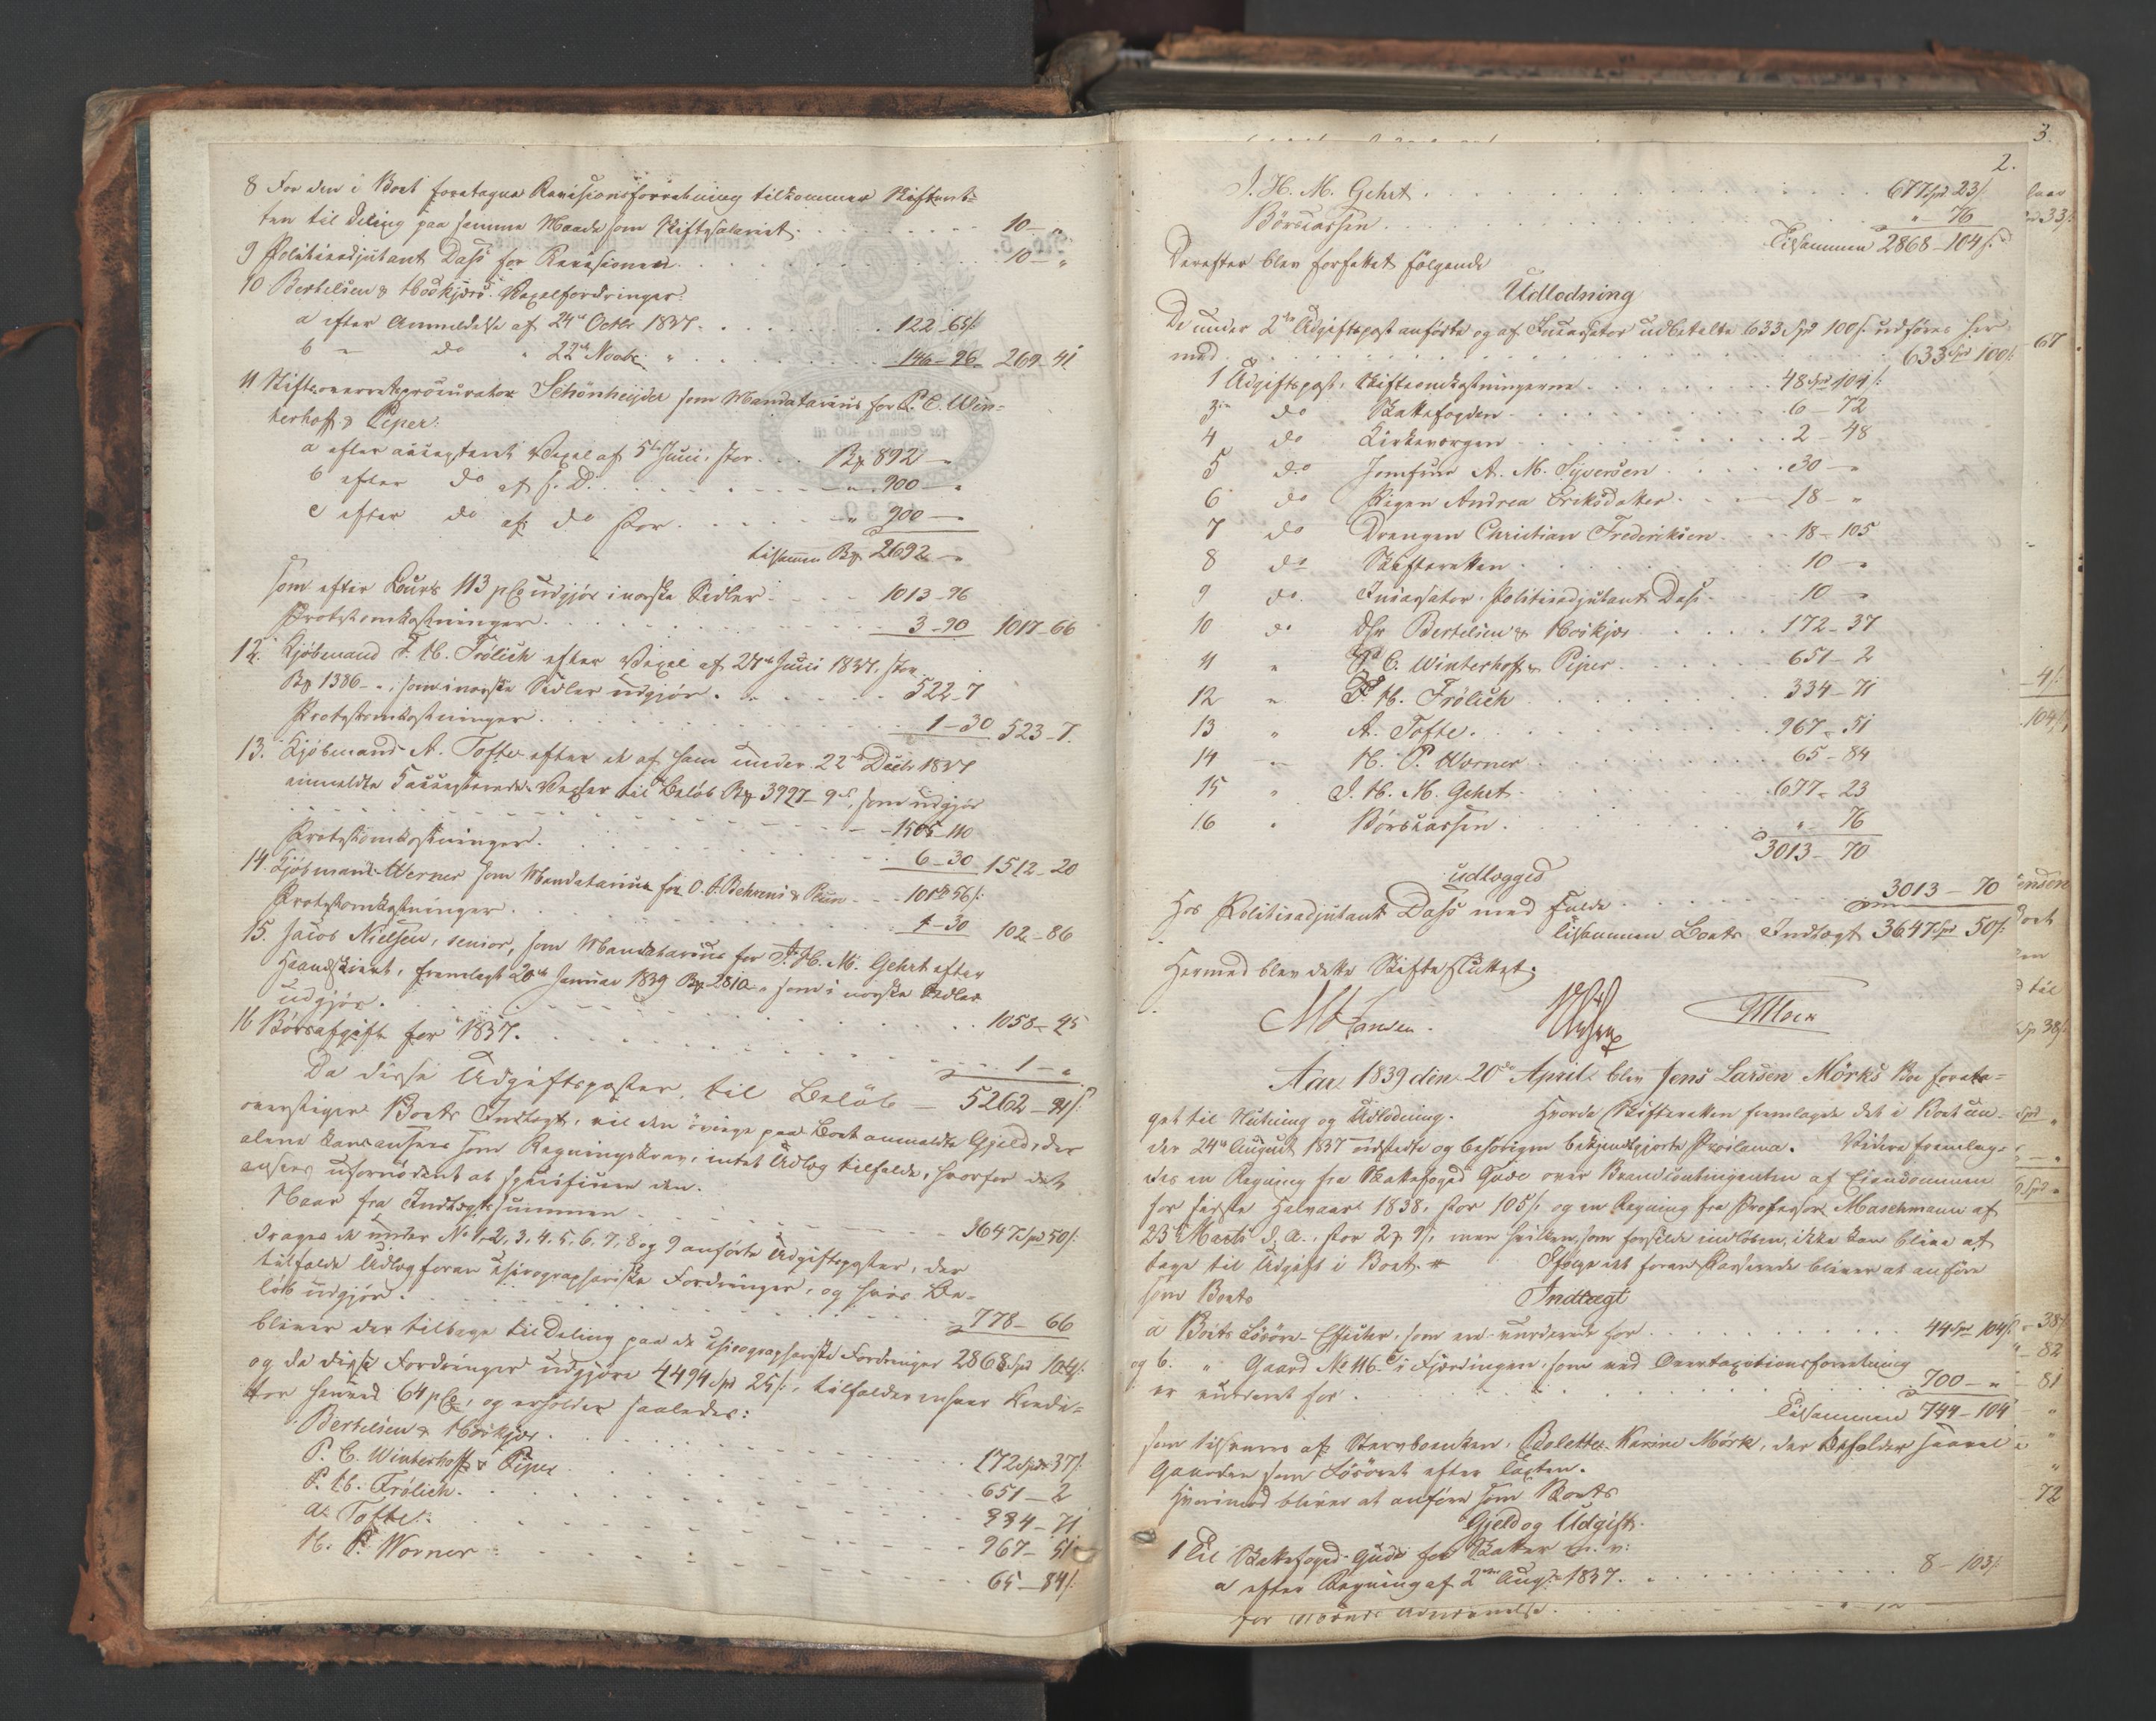 8 For den i Boet foretagne Revisionsforretning tilkommer Skifteret-
ten til Deling paa samme Maade som Skiftesalariet 10 - "
9 Politieadjutant Dass for Revisionen 10 - "
10 Bertelsen & Höskjærs Vexelfordringer:
a efter Anmeldelse af 24de Octbr 1837. 122-65/:
b " do " 22de Novbr " 146-96 269-41
11 Stiftsoverretsprocurator Schönheyder som Mandatarius for P. C. Win-
terhoff & Peper:
a efter accepteret Vexel af 5te Juni, stor Bx 892 - "
b efter do af s. D. " 900 - "
c efter do af do stor " 900 - "
tilsammen Bx 2692 - "
som efter Cours 113 pC udgjör i norske Sedler 1013-96
Protestomkostninger 3-90 1017-66
12. Kjöbmand F. H. Frölich efter Vexel af 27de Juni 1837, stor
Bx 1386 - ", som i norske Sedler udgjör 522-7
Protestomkostninger 1-30 523-7.
13. Kjöbmand A. Tofte efter de af ham under 22de Decbr 1837
anmeldte 5 accepterede Vexler til Belöb Bx 3997-9s, som udgjör
1505-110
Protestomkostninger 6-30 1512-20
14. Kjöbmand Werner som Mandatarius for O. J. Behrens & 101 Sp 56/:
Protestomkostninger 1-30 102-86
15. Jacob Nielsen, senior, som Mandatarius for J. H. M. Gehrt efter
Haandskrivt, fremlagt 26de Januar 1839 Bx 2810 - " som i norske Sedler
udgjör. 1058-95
16 Börsafgift for 1837. 1 - "
Da disse Udgiftsposter, til Belöb 5262-91/:
overstiger Boets Indtægt, vil den övrige paa Boet anmeldte Gjeld, der
alene kan ansees som Regningskrav, intet Udlæg tilfalde, hvorfor det
ansees ufornödent at specificere den.
Naar fra Indtægtssummen 3647 Spd 50/:
drages de under No 1, 2, 3, 4, 5, 6, 7, 8 og 9 anförte Udgiftsposter, der
tilfalde Udlæg foran chirographariske Fordringer, og hvis Be-
löb udgjör. 778-66
bliver der tilbage til Deling paa de chirographariske Fordringer 2868 Spd 104/:
og da disse Fordringer udgjöre 4494 Spd 25/:, tilfalder enhver Kredi-
tor herved 64 pC, og erholder saaledes:
Bertelsen & Höskjær. 172 Spd 37/:
P. C. Winterhoff & Peper 651-2
F. H. Frölich. 334-71
A. Tofte. 967-51
N. P. Worner 65-84/:
3.
2.
J. H. M. Gehrt 677 Spd 23/:
Börscassen " - 76
Tilsammen 2868-104/:
Derefter blev forfattet fölgende
Udlodning
De under 2den Udgiftspost anförte og af Incassator udbetalte 633 Spd 100/: udföres her
med 633 Spd 100/:
1 Udgiftspost, Skifteomkostningerne 48 Spd 104/:
3die do Skattefogden 6-72
4 do Kirkevergen 2-48
5 do Jomfrue A. M. Syversen 30 - "
6 do Pigen Andrea Eriksdatter 18 - "
7 do Drengen Christian Frederiksen 18-105
8 do Skifteretten 10 - "
9 do. Incassator, Politieadjutant Dass 10 - "
10 do Dhr Bertelsen & Höskjær 172-37
11 " P. C. Winterhoff & Peper 651-2
12 " F. H. Frölich 334-71
13 " A. Tofte. 967-51
14 " N. P. Worner 65-84
15 " J. H. M. Gehrt 677-23
16 " Börscassen. " - 76
3013-70
udlægges
Hos Politieadjutant Dass med Fulde 3013-70
tilsammen Boets Indtægt 3647 Spd 50/:
Hermed blev dette Skifte sluttet.
Aar 1839 den 20de April blev Jens Larsen Mörks Boe foreta-
get til Slutning og Udlodning. Hvorda Skifteretten fremlagde det i Boet un-
der 24de August 1837 udstedte og behörigen bekjendtgjorte Proclama. Videre fremlag-
des en Regning fra Skattefoged Gude over Brandcontingenten af Eiendommen
for förste Halvaar 1838, stor 105/: og en Regning fra Professor Maschmann af
23de Marts d. A., stor 2 Sp 9/:, men hvilken, som forsilde indloben, ikke kan blive at
tage til Udgift i Boet. Ifölge det foran Passerede bliver at anföre
som Boets Indtægt
a Boets Lösöre-Effecter, som ere vurderede for 44 Spd 104/:
og b. " Gaard No 116 C i Fjerdingen, som ved Overtaxationsforretning
er vurderet for 700 - "
Tilsammen 744-104
som tilsvares af Stervboenken, Bolette Karine Mörk, der beholder saavel
Gaarden som Lösöret efter Taxten.
Hvorimod bliver at anföre som Boets
Gjeld og Udgift.
1 Til Skattefoged Gude for Skatter m. v.
a efter Regning af 2den Augt 1837. 8-103/: